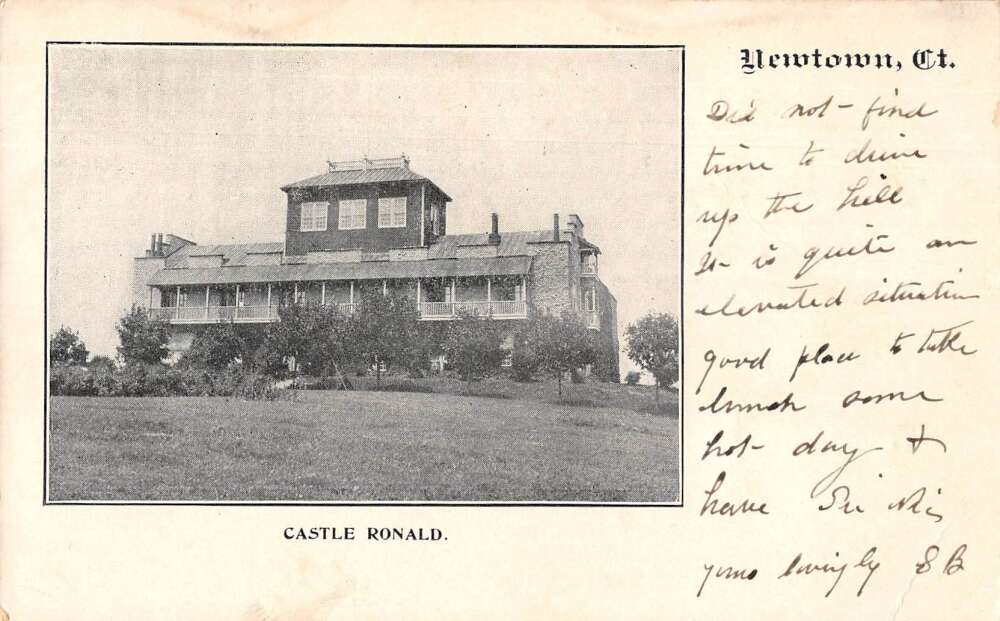 Newtown, Ct.
Did not find
time to drive
up the hill
It is quite an
elevated situation
good place to take
lunch some
hot day &
have
yours lovingly E B
CASTLE RONALD.